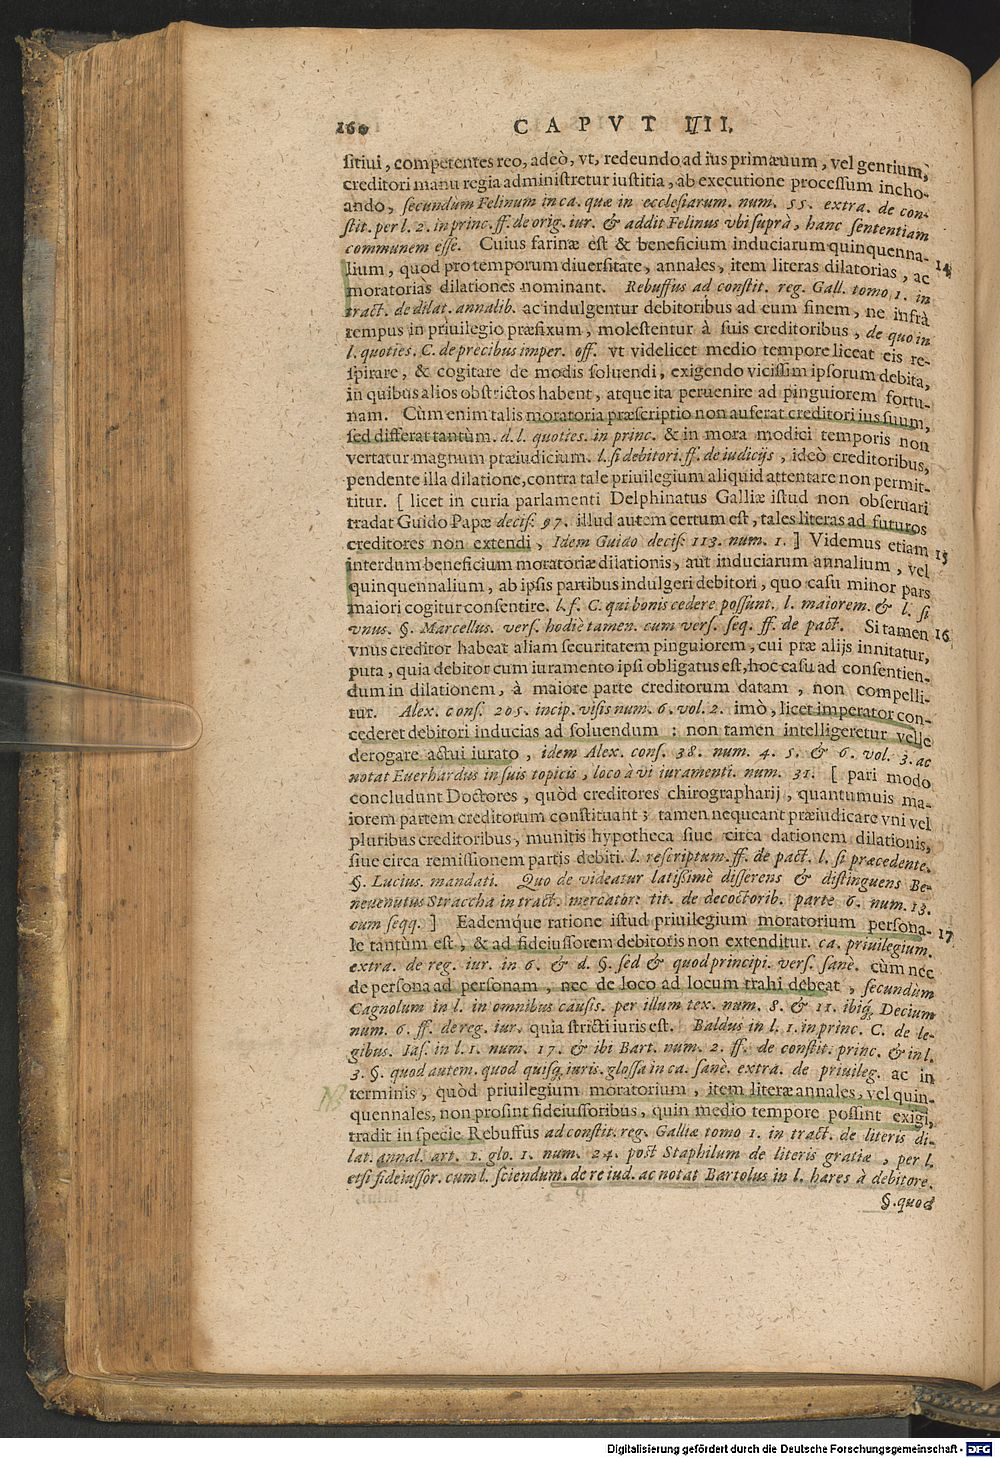 160 CAPVT IIII.
sitiui, competentes reo, adeò, vt, redeundo ad ius primæuum, vel gentium,
creditori manu regia administretur iustitia, ab executione processum incho-
ando, secundùm Felinum in ca. quæ in ecclesiarum. num. 55. extra. de con-
stit. per l. 2. in princ. ff. de orig. iur. & addit Felinus vbi suprà, hanc sententiam
communem esse. Cuius farinæ est & beneficium induciarum quinquenna-
lium, quod pro temporum diuersitate, annales, item literas dilatorias, ac 14
moratorias dilationes nominant. Rebuffus ad constit. reg. Gall. tomo 1. in
tract. de dilat. annalib. ac indulgentur debitoribus ad eum finem, ne infrà
tempus in priuilegio præfixum, molestentur à suis creditoribus, de quo in
l. quoties. C. de precibus imper. off. vt videlicet medio tempore liceat eis re-
spirare, & cogitare de modis soluendi, exigendo vicissim ipsorum debita,
in quibus alios obstrictos habent, atque ita peruenire ad pinguiorem fortu-
nam. Cùm enim talis moratoria præscriptio non auferat creditori ius suum,
sed differat tantùm. d. l. quoties. in princ. & in mora modici temporis non
vertatur magnum præiudicium. l. si debitori. ff. de iudicijs, ideò creditoribus,
pendente illa dilatione, contra tale priuilegium aliquid attentare non permit-
titur. [ licet in curia parlamenti Delphinatus Galliæ istud non obseruari
tradat Guido Papæ decis. 97. illud autem certum est, tales literas ad futuros
creditores non extendi, Idem Guido decis. 113. num. 1. ] Videmus etiam 15
interdum beneficium moratoriæ dilationis, aut induciarum annalium, vel
quinquennalium, ab ipsis partibus indulgeri debitori, quo casu minor pars
maiori cogitur consentire. l. f. C. qui bonis cedere possunt. l. maiorem. & l. si
vnus. §. Marcellus. vers. hodiè tamen. cum vers. seq. ff. de pact. Si tamen 16
vnus creditor habeat aliam securitatem pinguiorem, cui præ alijs innitatur,
puta, quia debitor cum iuramento ipsi obligatus est, hoc casu ad consentien-
dum in dilationem, à maiore parte creditorum datam, non compelli-
tur. Alex. cons. 205. incip. visis num. 6. vol. 2. imò, licet imperator con-
cederet debitori inducias ad soluendum ; non tamen intelligeretur velle
derogare actui iurato, idem Alex. cons. 38. num. 4. 5. & 6. vol. 3. ac
notat Euerhardus in suis topicis, loco à vi iuramenti. num. 31. [ pari modo
concludunt Doctores, quòd creditores chirographarij, quantumuis ma-
iorem partem creditorum constituant ; tamen nequeant præiudicare vni vel
pluribus creditoribus, munitis hypotheca siue circa dationem dilationis,
siue circa remissionem partis debiti. l. rescriptum. ff. de pact. l. si præcedente.
§. Lucius. mandati. Quo de videatur latissimè disserens & distinguens Be-
neuenutus Straccha in tract. mercator: tit. de decoctorib. parte 6. num. 13.
cum seqq. ] Eademq́ue ratione istud priuilegium moratorium persona- 17
le tantùm est, & ad fideiussorem debitoris non extenditur. ca. priuilegium.
extra. de reg. iur. in 6. & d. §. sed & quod principi. vers. sanè. cùm nec
de persona ad personam, nec de loco ad locum trahi debeat, secundùm
Cagnolum in l. in omnibus causis. per illum tex. num. 8. & 11. ibiq́. Decium
num. 6. ff. de reg. iur. quia stricti iuris est. Baldus in l. 1. in princ. C. de le-
gibus. Ias. in l. 1. num. 17. & ibi Bart. num. 2. ff. de constit. princ. & in l.
3. §. quod autem. quod quisq́. iuris. glossa in ca. sanè. extra. de priuileg. ac in
NB terminis, quòd priuilegium moratorium, item literæ annales, vel quin-
quennales, non prosint fideiussoribus, quin medio tempore possint exigi,
tradit in specie Rebuffus ad constit. reg. Galliæ tomo 1. in tract. de literis di-
lat. annal. art. 1. glo. 1. num. 24. post Staphilum de literis gratiæ, per l.
etsi fideiussor. cum l. sciendum. de re iud. ac notat Bartolus in l. hæres à debitore.
§. quod
Digitalisierung gefördert durch die Deutsche Forschungsgemeinschaft - DFG